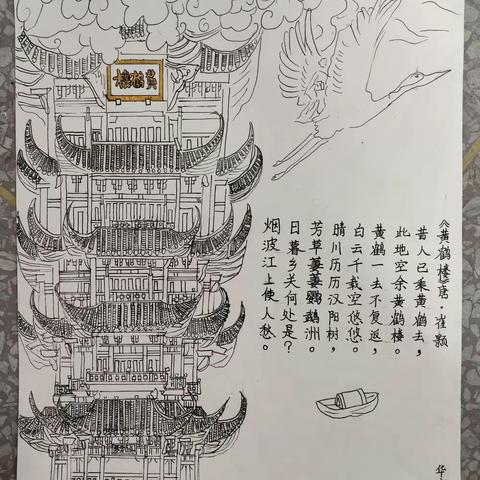 黄鹤楼
《黄鹤楼》唐·崔颢
昔人已乘黄鹤去，
此地空余黄鹤楼。
黄鹤一去不复返，
白云千载空悠悠。
晴川历历汉阳树，
芳草萋萋鹦鹉洲。
日暮乡关何处是？
烟波江上使人愁。
华